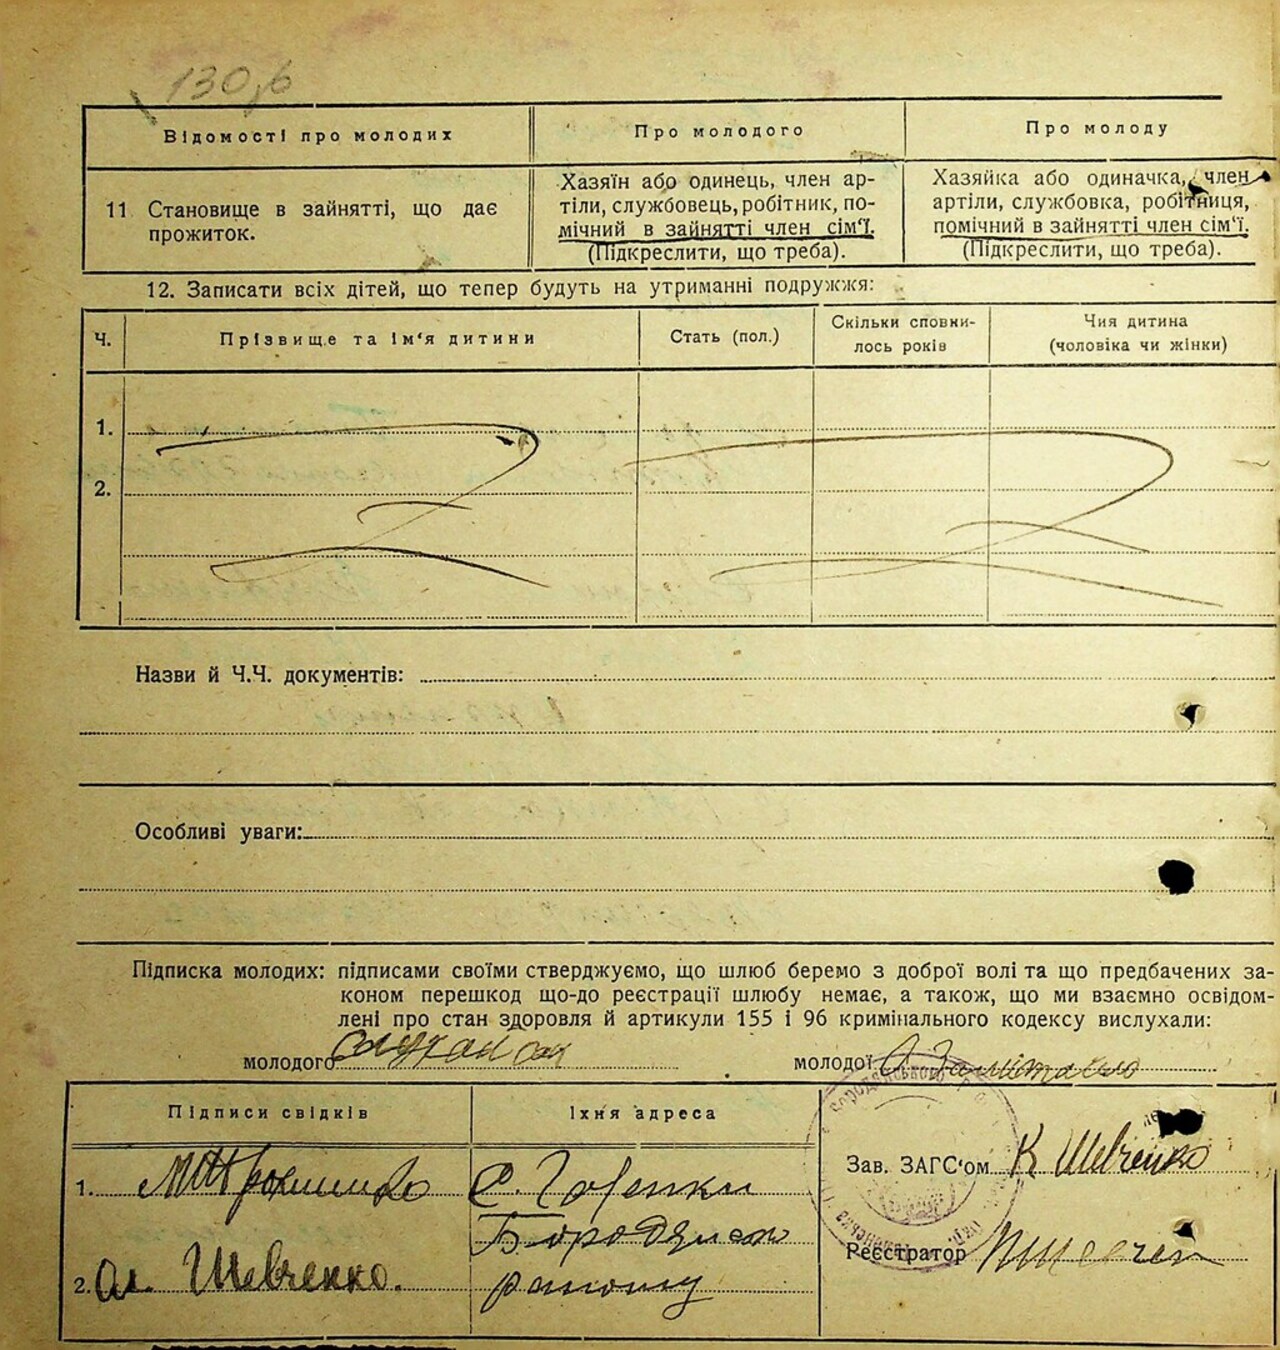 130
Відомості про молодих
Про молодого
Про молоду
11 Становище в зайнятті, що дає
прожиток.
Хазяїн або одинець, член ар-
тіли, службовець, робітник, по-
мічний в зайнятті член сім'ї.
(Підкреслити, що треба).
Хазяйка або одиначка, член
артіли, службовка, робітниця,
помічний в зайнятті член сім'ї.
(Підкреслити, що треба).
12. Записати всіх дітей, що тепер будуть на утриманні подружжя:
Ч.
Прізвище та ім'я дитини
Стать (пол.)
Скільки сповни-
лось років
Чия дитина
(чоловіка чи жінки)
1.
2.
Назви й Ч.Ч. документів:
Особливі уваги:
Підписка молодих: підписами своїми стверджуємо, що шлюб беремо з доброї волі та що предбачених за-
коном перешкод що-до реєстрації шлюбу немає, а також, що ми взаємно освідом-
лені про стан здоровля й артикули 155 і 96 кримінального кодексу вислухали:
молодого
молодої
Підписи свідків
Їхня адреса
1.
с.
Бородянск
району
2. Ол. Шевченко.
Зав. ЗАГС'ом К Шевченко
Реєстратор